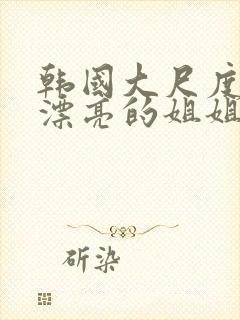 韩国大尺度
漂亮的姐姐
斫染